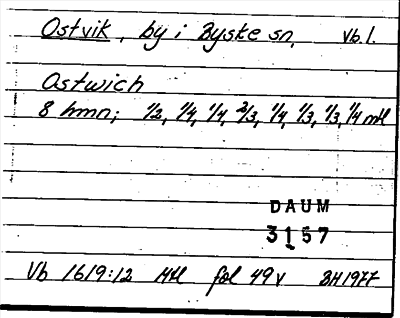 Ostvik, by i Byske sn, Vb. l.
Ostwich
8 hmn; 1/2, 1/4, 1/4, 2/3, 1/4, 1/3, 1/3, 1/4 mtl
DAUM
3157
Vb 1619:12 Mtl fol 49v BH1977